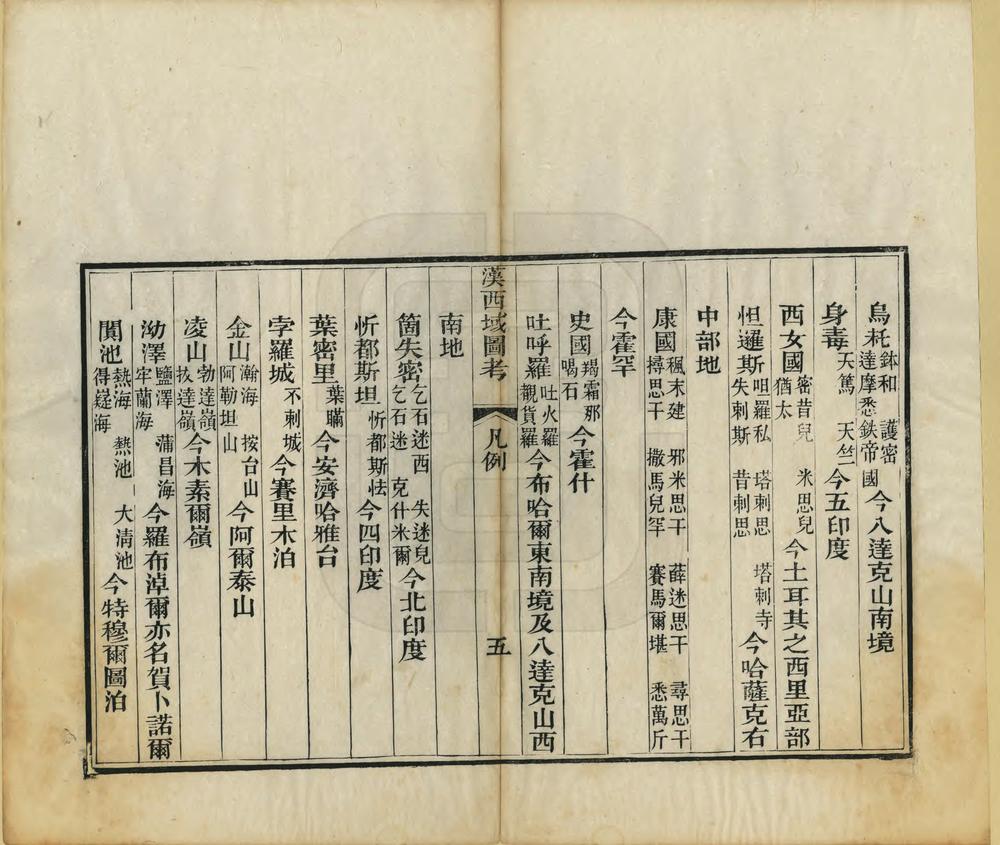 烏秅鉢和 護密達摩悉鉄帝國今八達克山南境
身毒天篤 天竺今五印度
西女國密昔兒 米思兒猶太今土耳其之西里亞部
怛邏斯呾羅私 塔剌思 塔剌寺失剌斯 昔剌思今哈薩克右
中部地
康國颯末建 邪米思干 薛迷思干 尋思干撏思干 撒馬兒罕 賽馬爾堪 悉萬斤
今霍罕
史國羯霜那碣石今霍什
吐呼羅吐火羅覩貨羅今布哈爾東南境及八達克山西
漢西域圖考 凡例 五
南地
箇失密乞石迷西 失迷兒乞石迷 克什米爾今北印度
忻都斯坦忻都斯怯今四印度
葉密里葉瞞今安濟哈雅台
孛羅城不剌城今賽里木泊
金山瀚海 按台山阿勒坦山今阿爾泰山
凌山勃達嶺拔達嶺今木素爾嶺
泑澤鹽澤 蒲昌海牢蘭海今羅布淖爾亦名賀卜諾爾
闐池熱海 熱池 大清池得嶷海今特穆爾圖泊